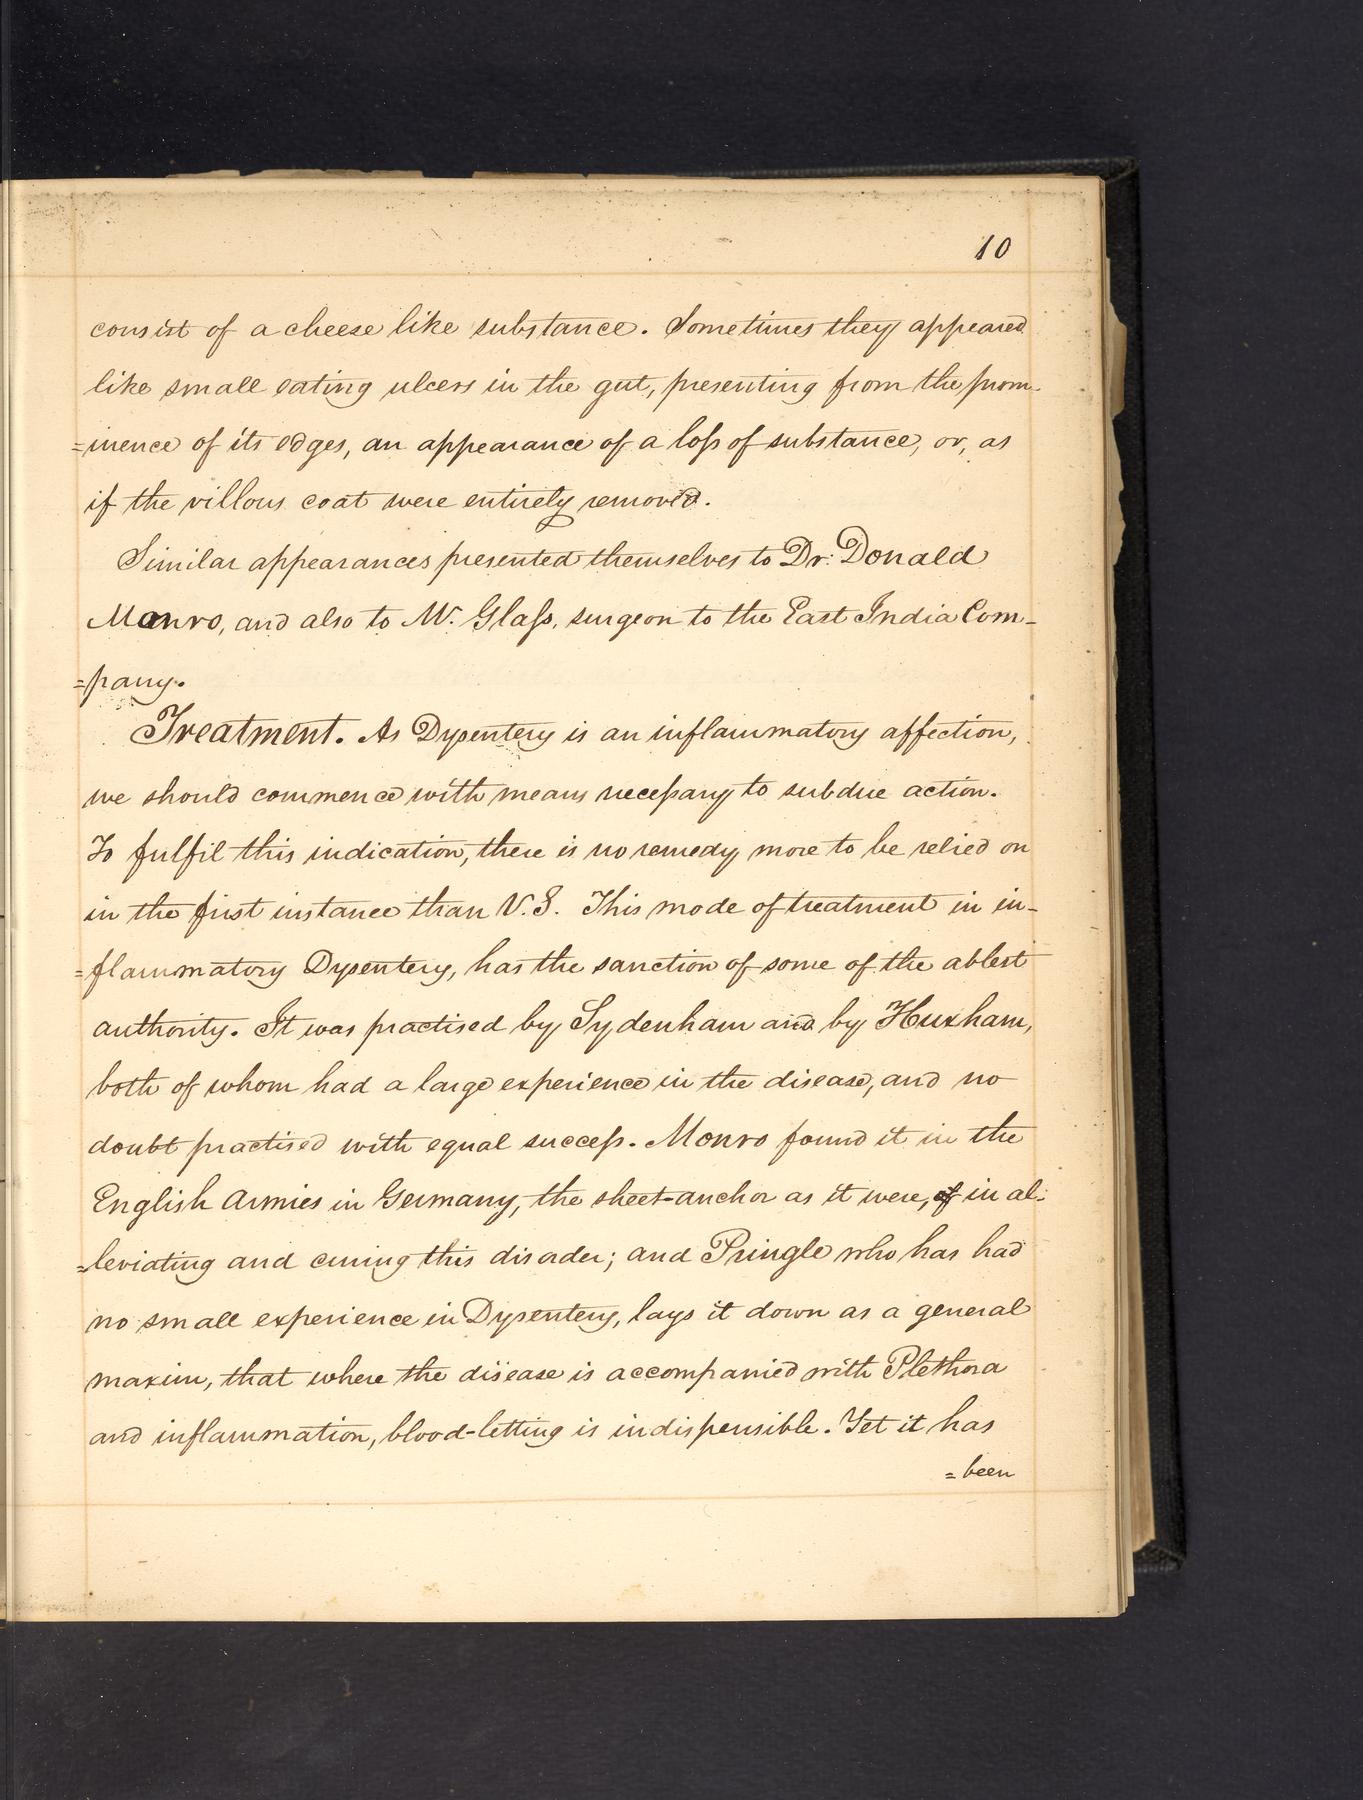 10
consist of a cheese like substance. Sometimes they appeared
like small eating ulcers in the gut, presenting from the prom-
=inence of its edges, an appearance of a loſs of substance, or, as
if the villous coat were entirely removed.
Similar appearances presented themselves to Dr. Donald
Monro, and also to Mr. Glaſs, surgeon to the East India Com-
=pany.
Treatment. As Dysentery is an inflammatory affection,
we should commence with means neceſsary to subdue action.
To fulfil this indication, there is no remedy more to be relied on
in the first instance than V.S. This mode of treatment in in-
=flammatory Dysentery, has the sanction of some of the ablest
authority. It was practised by Sydenham and by Huxham,
both of whom had a large experience in the disease, and no
doubt practised with equal succeſs. Monro found it in the
English Armies in Germany, the sheet-anchor as it were, of in al-
=leviating and curing this disorder; and Pringle who has had
no small experience in Dysentery, lays it down as a general
maxim, that where the disease is accompanied with Plethora
and inflammation, blood-letting is indispensible. Yet it has
=been